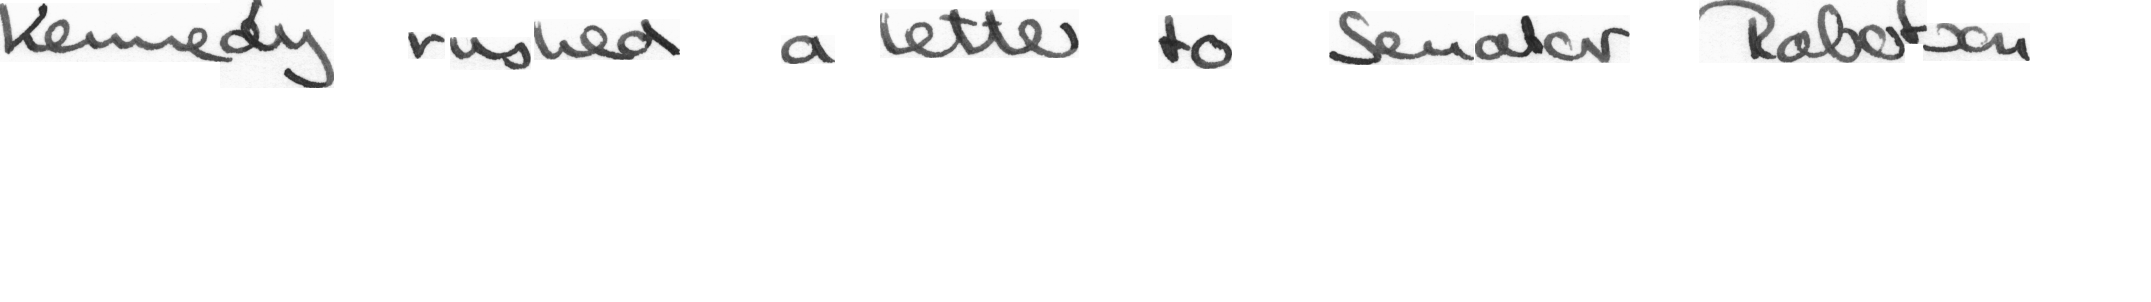 Kennedy rushed a letter to Senator Robertson